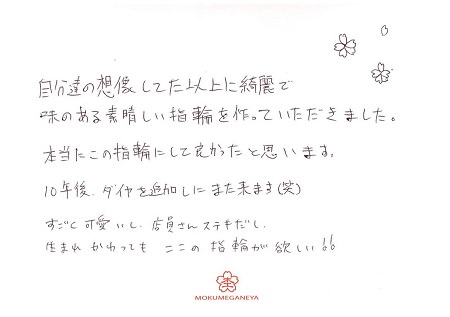 自分達の想像してた以上に綺麗で
味のある素晴しい指輪を作っていただきました。
本当にこの指輪にして良かったと思います。
10年後、ダイヤを追加しにまた来ます(笑)
すごく可愛いし、店員さんステキだし、
生まれかわっても ここの指輪が欲しい!!
MOKUMEGANEYA